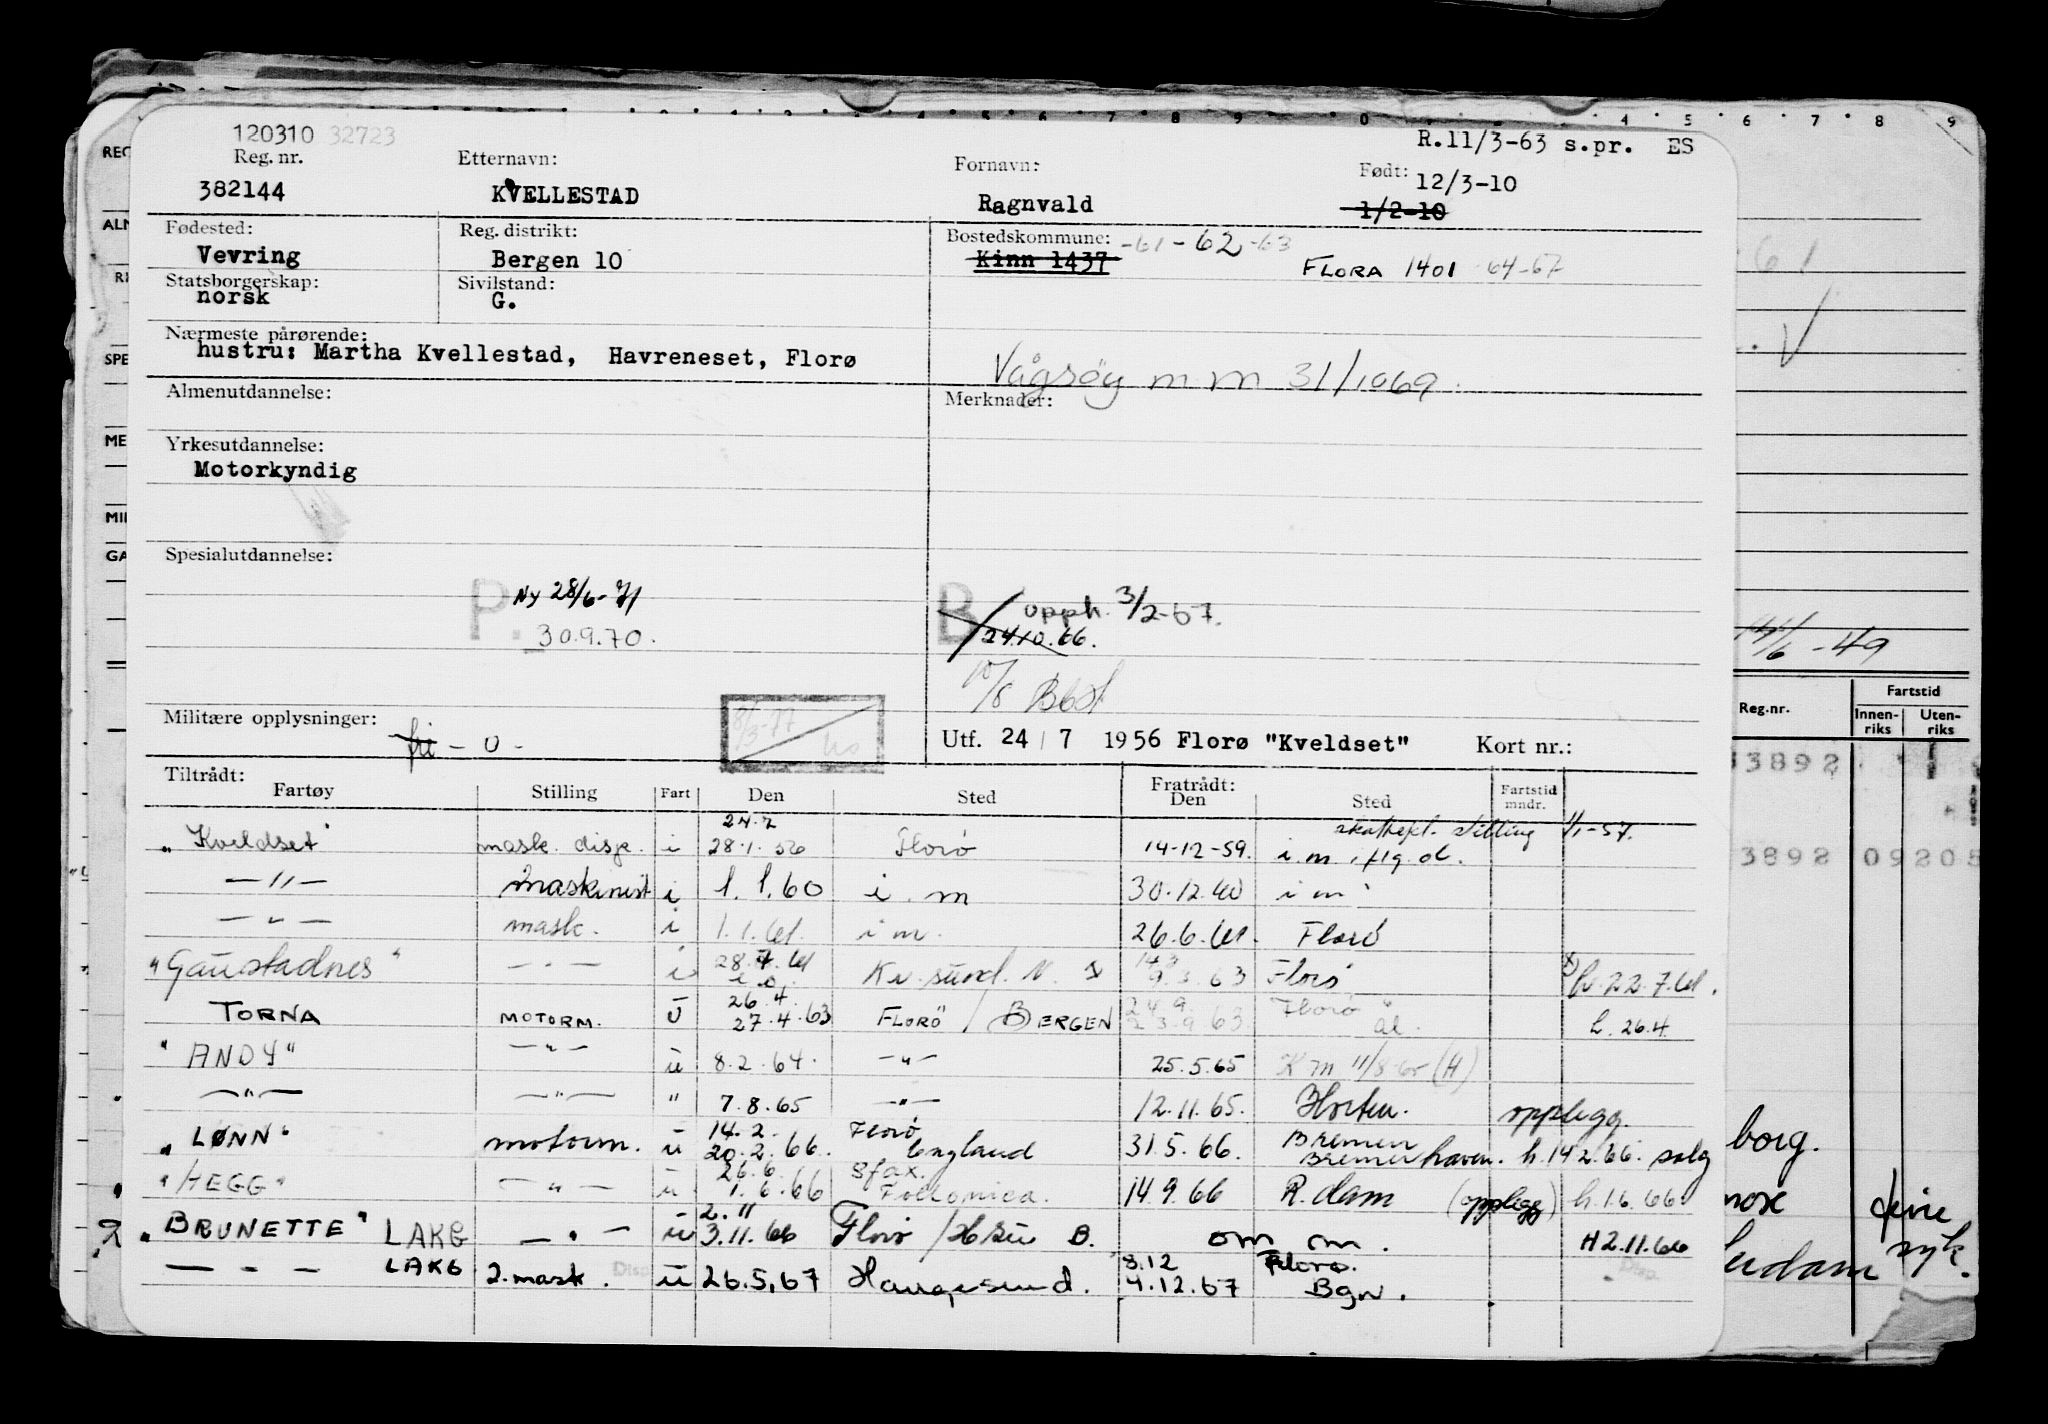 120310 32723
R.11/3-63 s.pr. ES
Reg. nr. Etternavn: Fornavn: Født: 12/3-10
382144 KVELLESTAD Ragnvald 1/2-10
Fødested: Reg. distrikt: Bostedskommune: -61-62-63
Vevring Bergen 10 Kinn 1437 FLORA 1401 64-67
Statsborgerskap: Sivilstand:
norsk G.
Nærmeste pårørende:
hustru: Martha Kvellestad, Havreneset, Florø
Vågsøy m m 31/10 69.
Almenutdannelse: Merknader:
Yrkesutdannelse:
Motorkyndig
Spesialutdannelse:
P. Ny 28/6-71 B opph. 3/2-67.
30.9.70. 24.10.66.
10/8
Militære opplysninger: fri - 0 - 8/3-77
Utf. 24/7 1956 Florø "Kveldset" Kort nr.:
Tiltrådt: Fratrådt:
Fartøy Stilling Fart Den Sted Den Sted Fartstid mndr.
24.7 stilling 1/1-57.
"Kveldset" mask. disp. i 28.1.56 Florø 14-12-59. i.m. flg. ol.
—"— Maskinist i 1.1.60 i.m 30.12.60 i m
—"— mask. i 1.1.61. i m. 26.6.61. Florø
"Gaustadnes" —"— i 28.7.61 Kr. sund. N. 9.3.63 Florø h. 22.7.61.
26.4. 24.9. Florø
TORNA MOTORM. U 27.4.63 FLORÖ / BERGEN 23.9.63 h. 26.4
"ANDY" —"— u 8.2.64. —"— 25.5.65 (H)
—"— —"— " 7.8.65 —"— 12.11.65. Horten. opplegg.
14.2. Florø Bremen
"LØNN" motorm. u 20.2.66. England 31.5.66. Bremerhaven. h. 14.2.66. salg
26.6. Sfax.
"HEGG" —"— u 1.6.66 Follonica. 14.9.66 R.dam (opplegg) h. 1.6.66
2.11
"BRUNETTE" LAKG —"— u 3.11.66 Florø / om m. H 2.11.66
8.12 Florø.
— " — LAKG 2. mask. u 26.5.67 Haugesund. 4.12.67 Bgn.
REG
ALM
SPE
MIL
14/6-49
Reg.nr. Fartstid
Innen-riks Uten-riks
3892
3892 09205
borg.